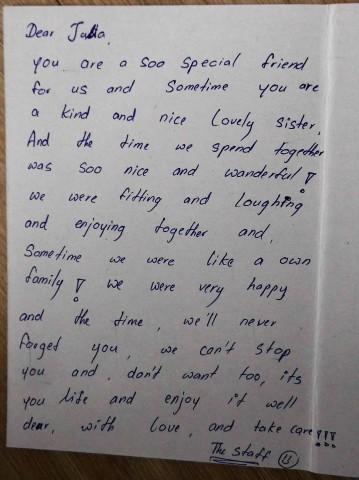 Dear Julia,
you are a soo special friend
for us and Sometime you are
a kind and nice Lovely sister,
And the time we spend together
was soo nice and wanderful!
we were fitting and Loughing
and enjoying together and,
Sometime we were like a own
family! we were very happy
and the time, we'll never
forget you, we can't stop
you and, don't want too, its
you life and enjoy it well
dear, with love, and take care!!!
The staff 13